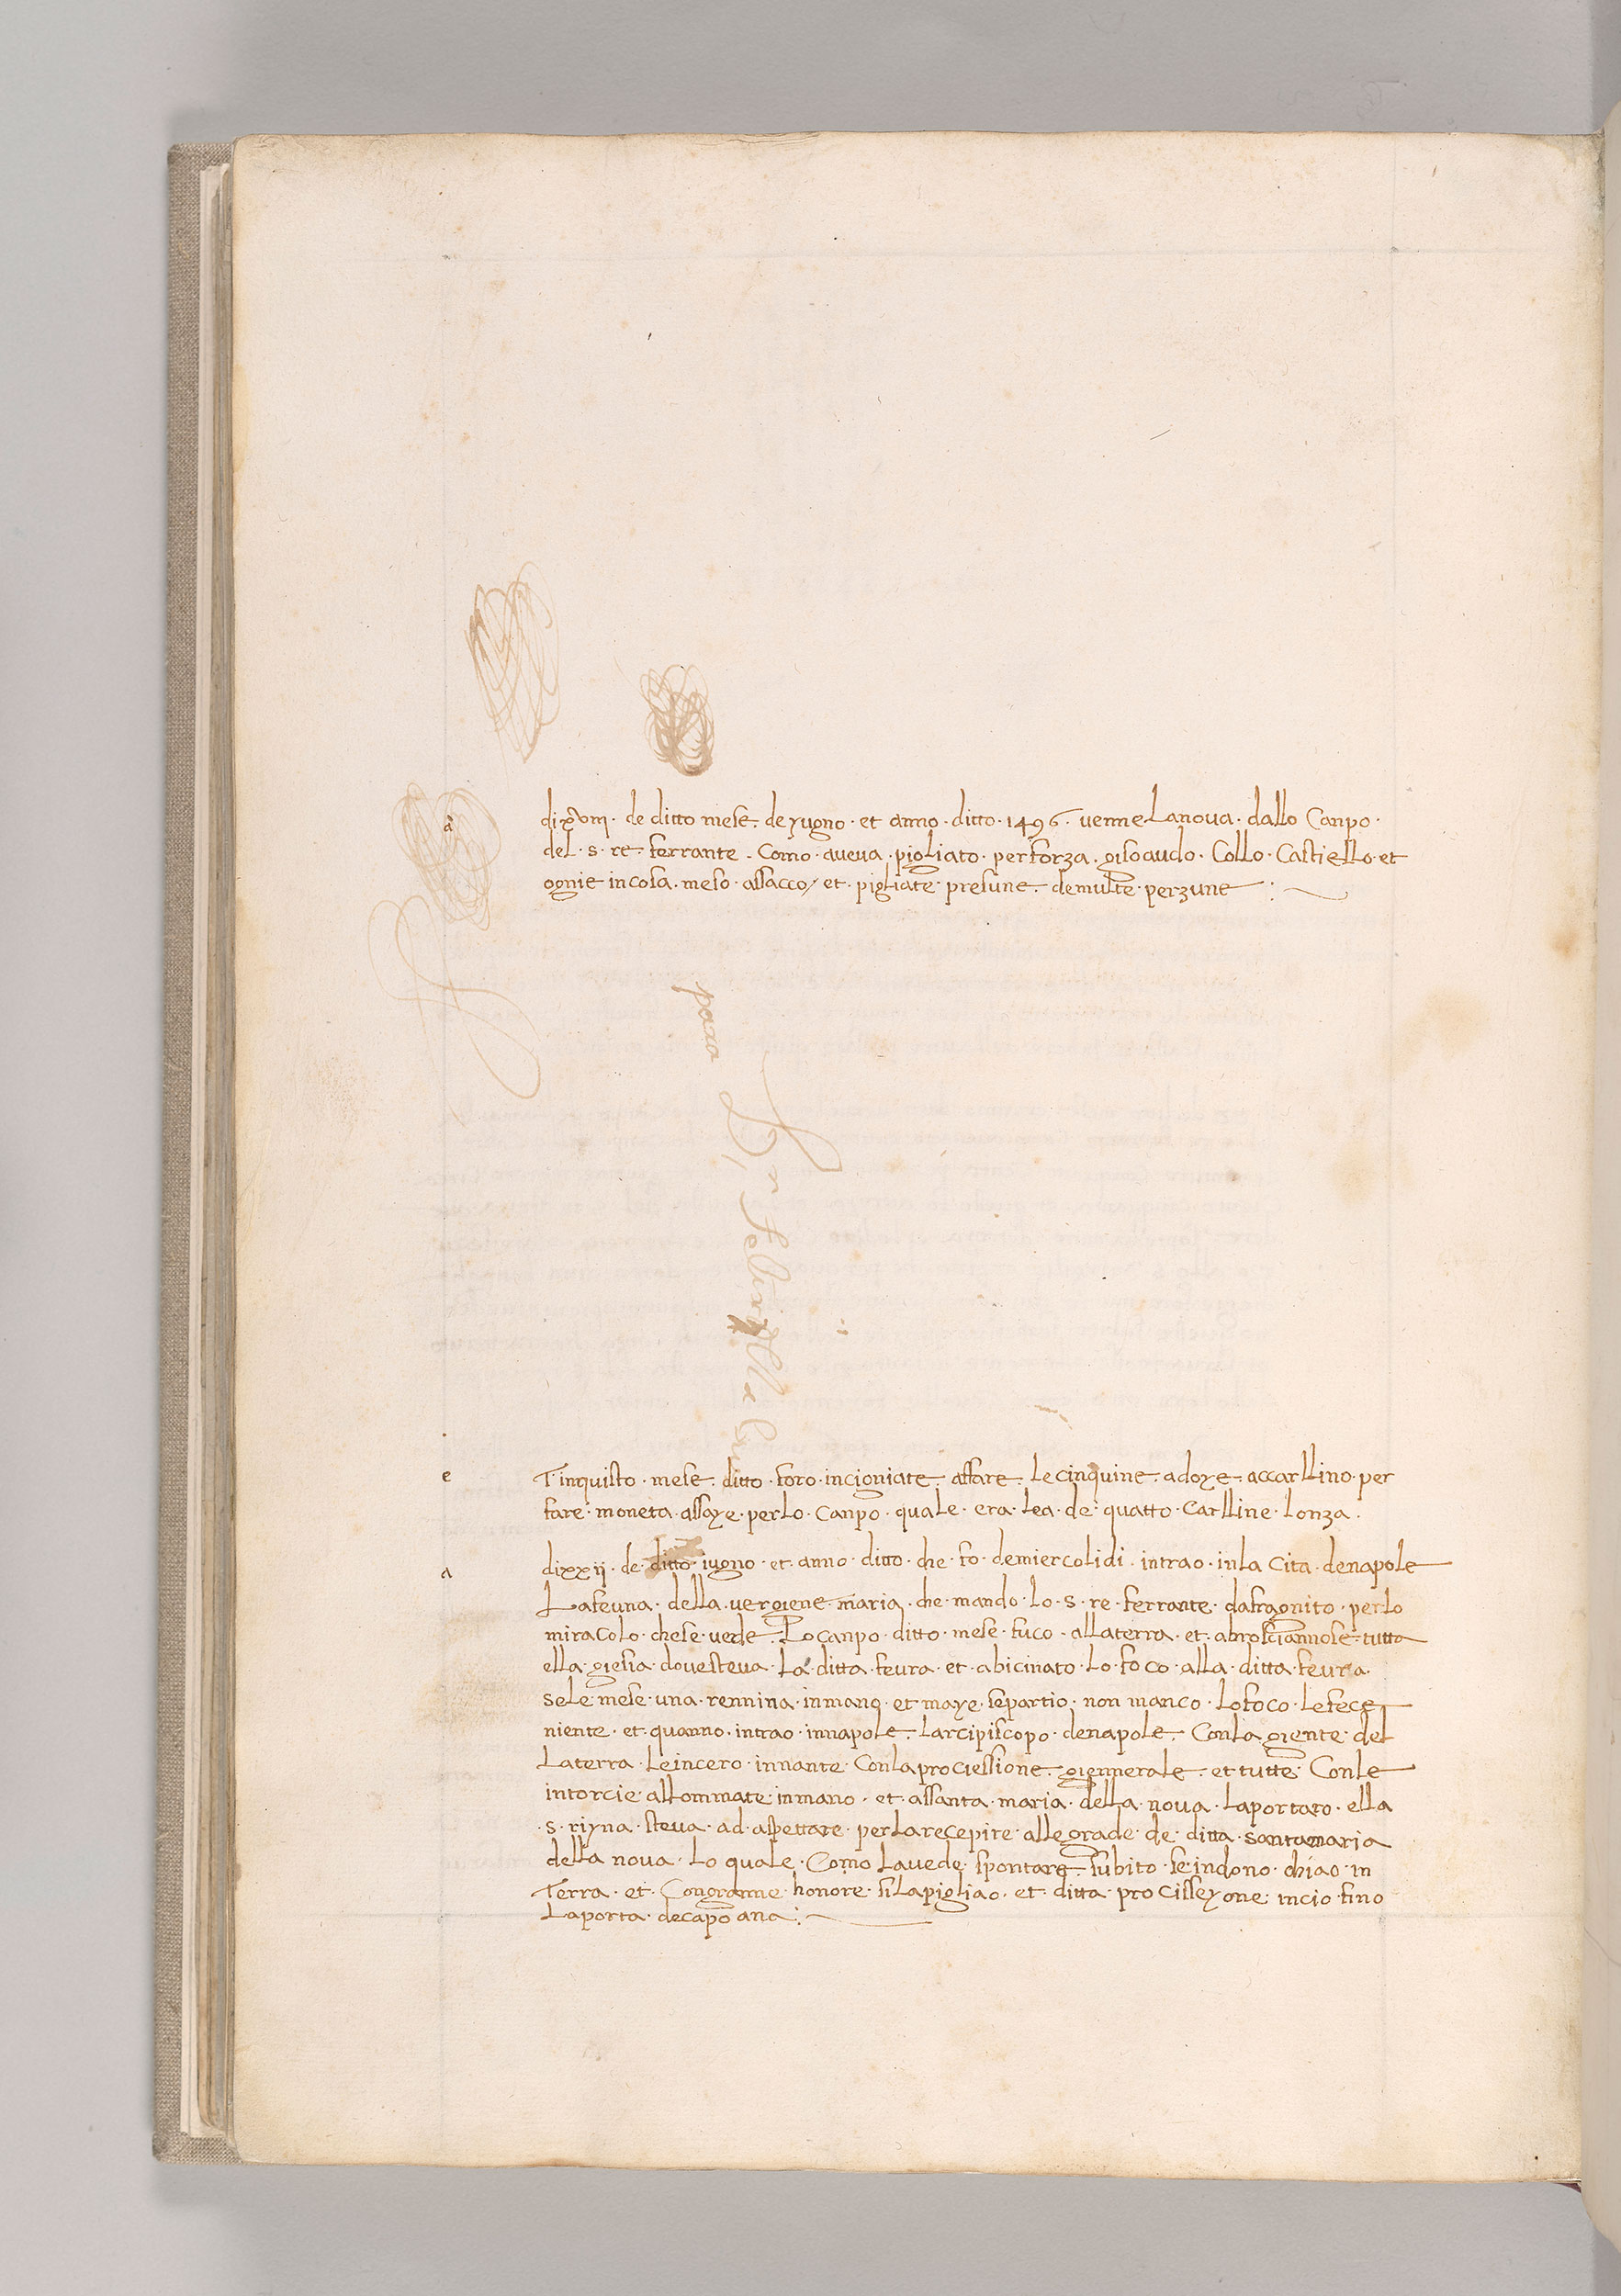 a
dixviii · de ditto mese · de yugno · et anno · ditto · 1496 · venne Lanova · dallo Canpo ·
del · s · re · ferrante · Como · aveva · pigliato · perforza · gisoaudo · Collo · Castiello · et
ognie incosa · meso · assacco / et · pigliate · presune · demulte · perzune :
para
e
T · inquisto · mese · ditto · foro · incigniate · affare · Lecinquine · adoye · accarllino · per
fare · moneta · assaye · perlo · Canpo · quale · era · lea · de · quatto · Carlline · Lonza ·
a
dixxii · de · ditto · iugno · et · anno · ditto · che · fo · demiercolidi · intrao · inla Cita · denapole
Lafeuna · della · vergiene · maria · che · mando · lo · s · re · ferrante · dafragonito · perlo
miracolo · chese · vede · Lo canpo · ditto · mese · fuco · allaterra · et · abrosciannose · tutta
ella · giesia · dovesteva · La · ditta · feura · et · abicinato · Lo · foco · alla · ditta · feura ·
sele · mese · una · rennina · inmano · et maye · separtio · non manco · Lofoco · Lefece
niente · et · quanno · intrao · innapole · Larcipiscopo · denapole · Conla · giente · del
Laterra · Leincero · innante · Conlaprociessione · giennerale · et tutte · Conle
intorcie · allommate · inmano · et · assanta · maria · della · nova · Laportaro · ella
· s · riyna · steva · ad · aspettare · perLarecepire · allegrade · de · ditta · santamaria
della nova · Lo quale · Como Lavede · spontare · subito · se · indono · chiao · in
Terra · et · Congranne · honore · si Lapigliao · et · ditta · procisseyone · incio · fino
Laporta · decapoana :